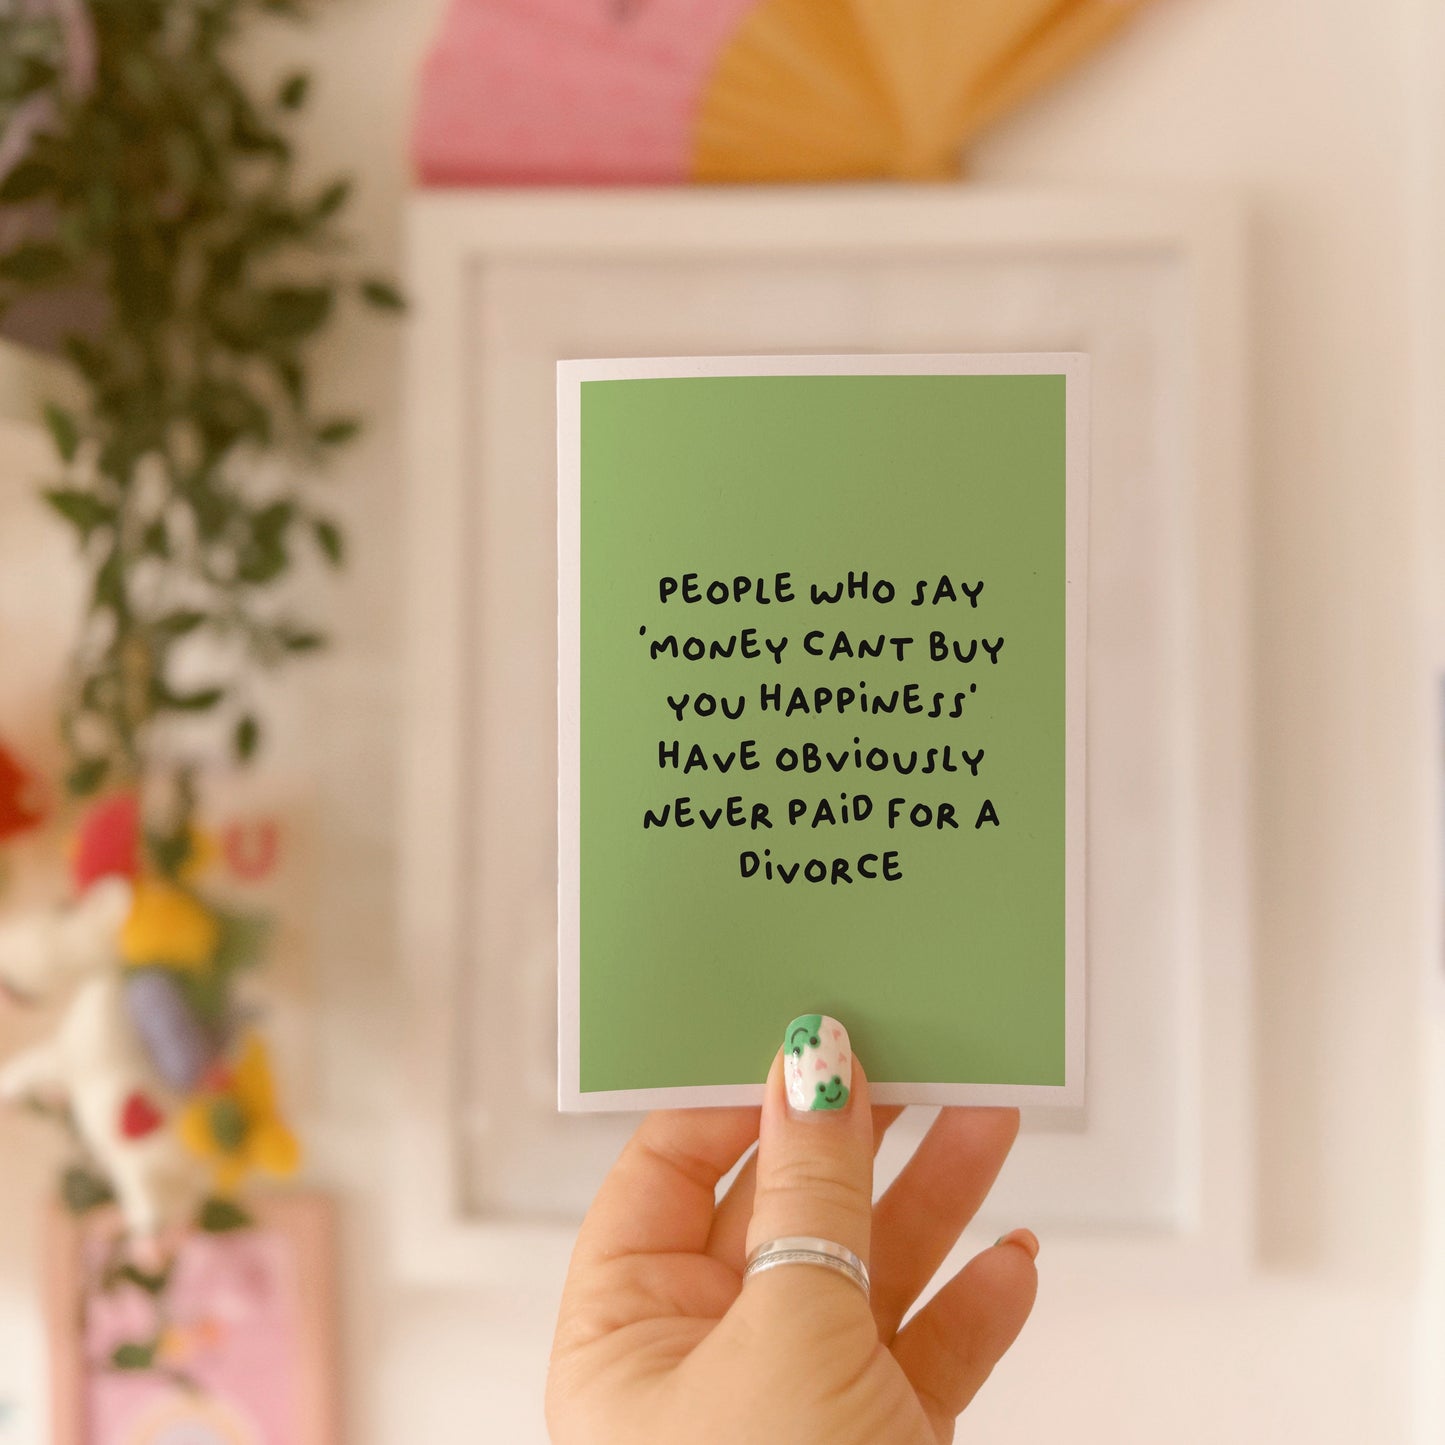 PEOPLE WHO SAY
'MONEY CANT BUY
YOU HAPPINESS'
HAVE OBVIOUSLY
NEVER PAID FOR A
DIVORCE